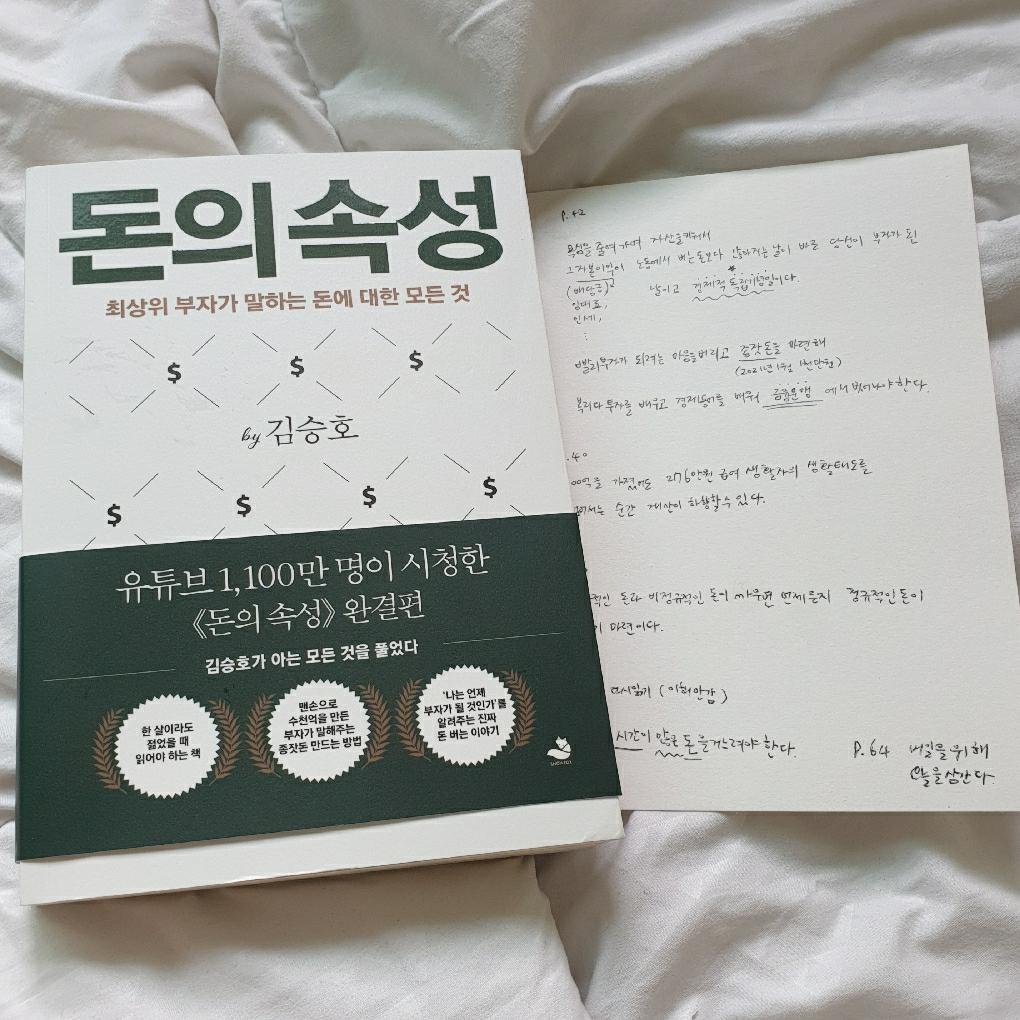 돈의 속성
최상위 부자가 말하는 돈에 대한 모든 것
$ $ $
by 김승호
$ $ $ $
유튜브 1,100만 명이 시청한
《돈의 속성》 완결편
김승호가 아는 모든 것을 풀었다
한 살이라도
젊었을 때
읽어야 하는 책
맨손으로
수천억을 만든
부자가 말해주는
종잣돈 만드는 방법
'나는 언제
부자가 될 것인가'를
알려주는 진짜
돈 버는 이야기
SNOWFOX
P.42
욕심을 줄여가며 자산을키워서
그자본이익이 노동에서 버는돈보다 많아지는날이 바로 당신이 부자가 된
(배당금) 날이고 경제적 독립기념일이다.
임대료,
인세,
빨리부자가 되려는 마음을버리고 종잣돈을 마련해
(2021년 1월 1천만원)
복리다투자를 배우고 경제용어를 배워 금융문맹 에서 벗어나야한다.
.40
00억을 가졌어도 276만원 급여 생활자의 생활태도를
순간 재산이 하향할수 있다.
돈과 비정규적인 돈이 싸우면 언제든지 정규적인돈이
마련이다.
다시읽기 (이해안감)
시간이 많은 돈을 거느려야 한다.
P.64 내일을위해
오늘을삼간다.